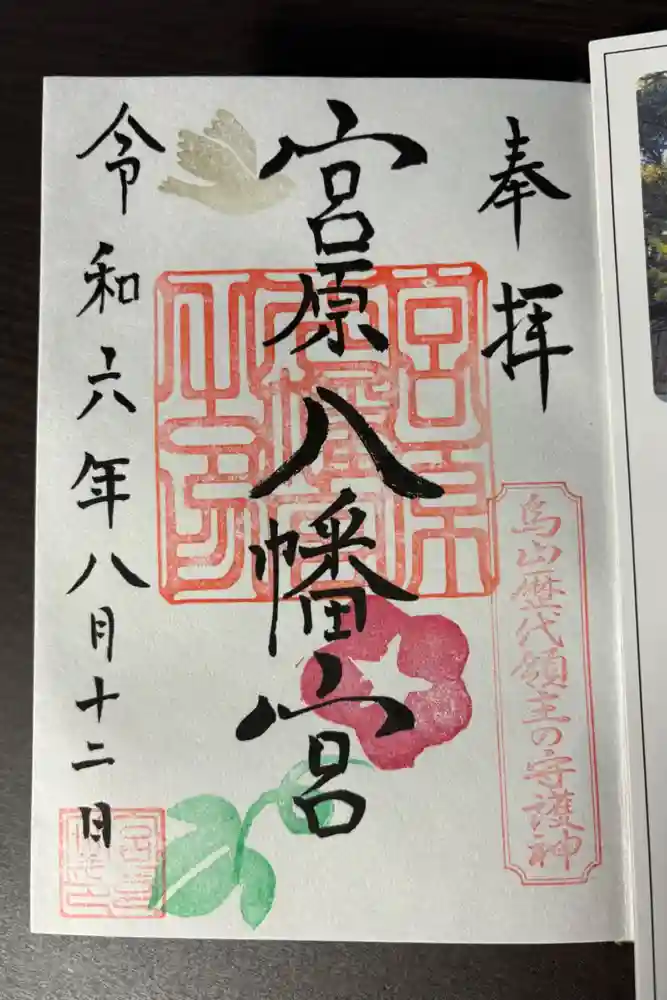 奉拝
烏山歴代領主の守護神
宮原八幡宮
令和六年八月十二日